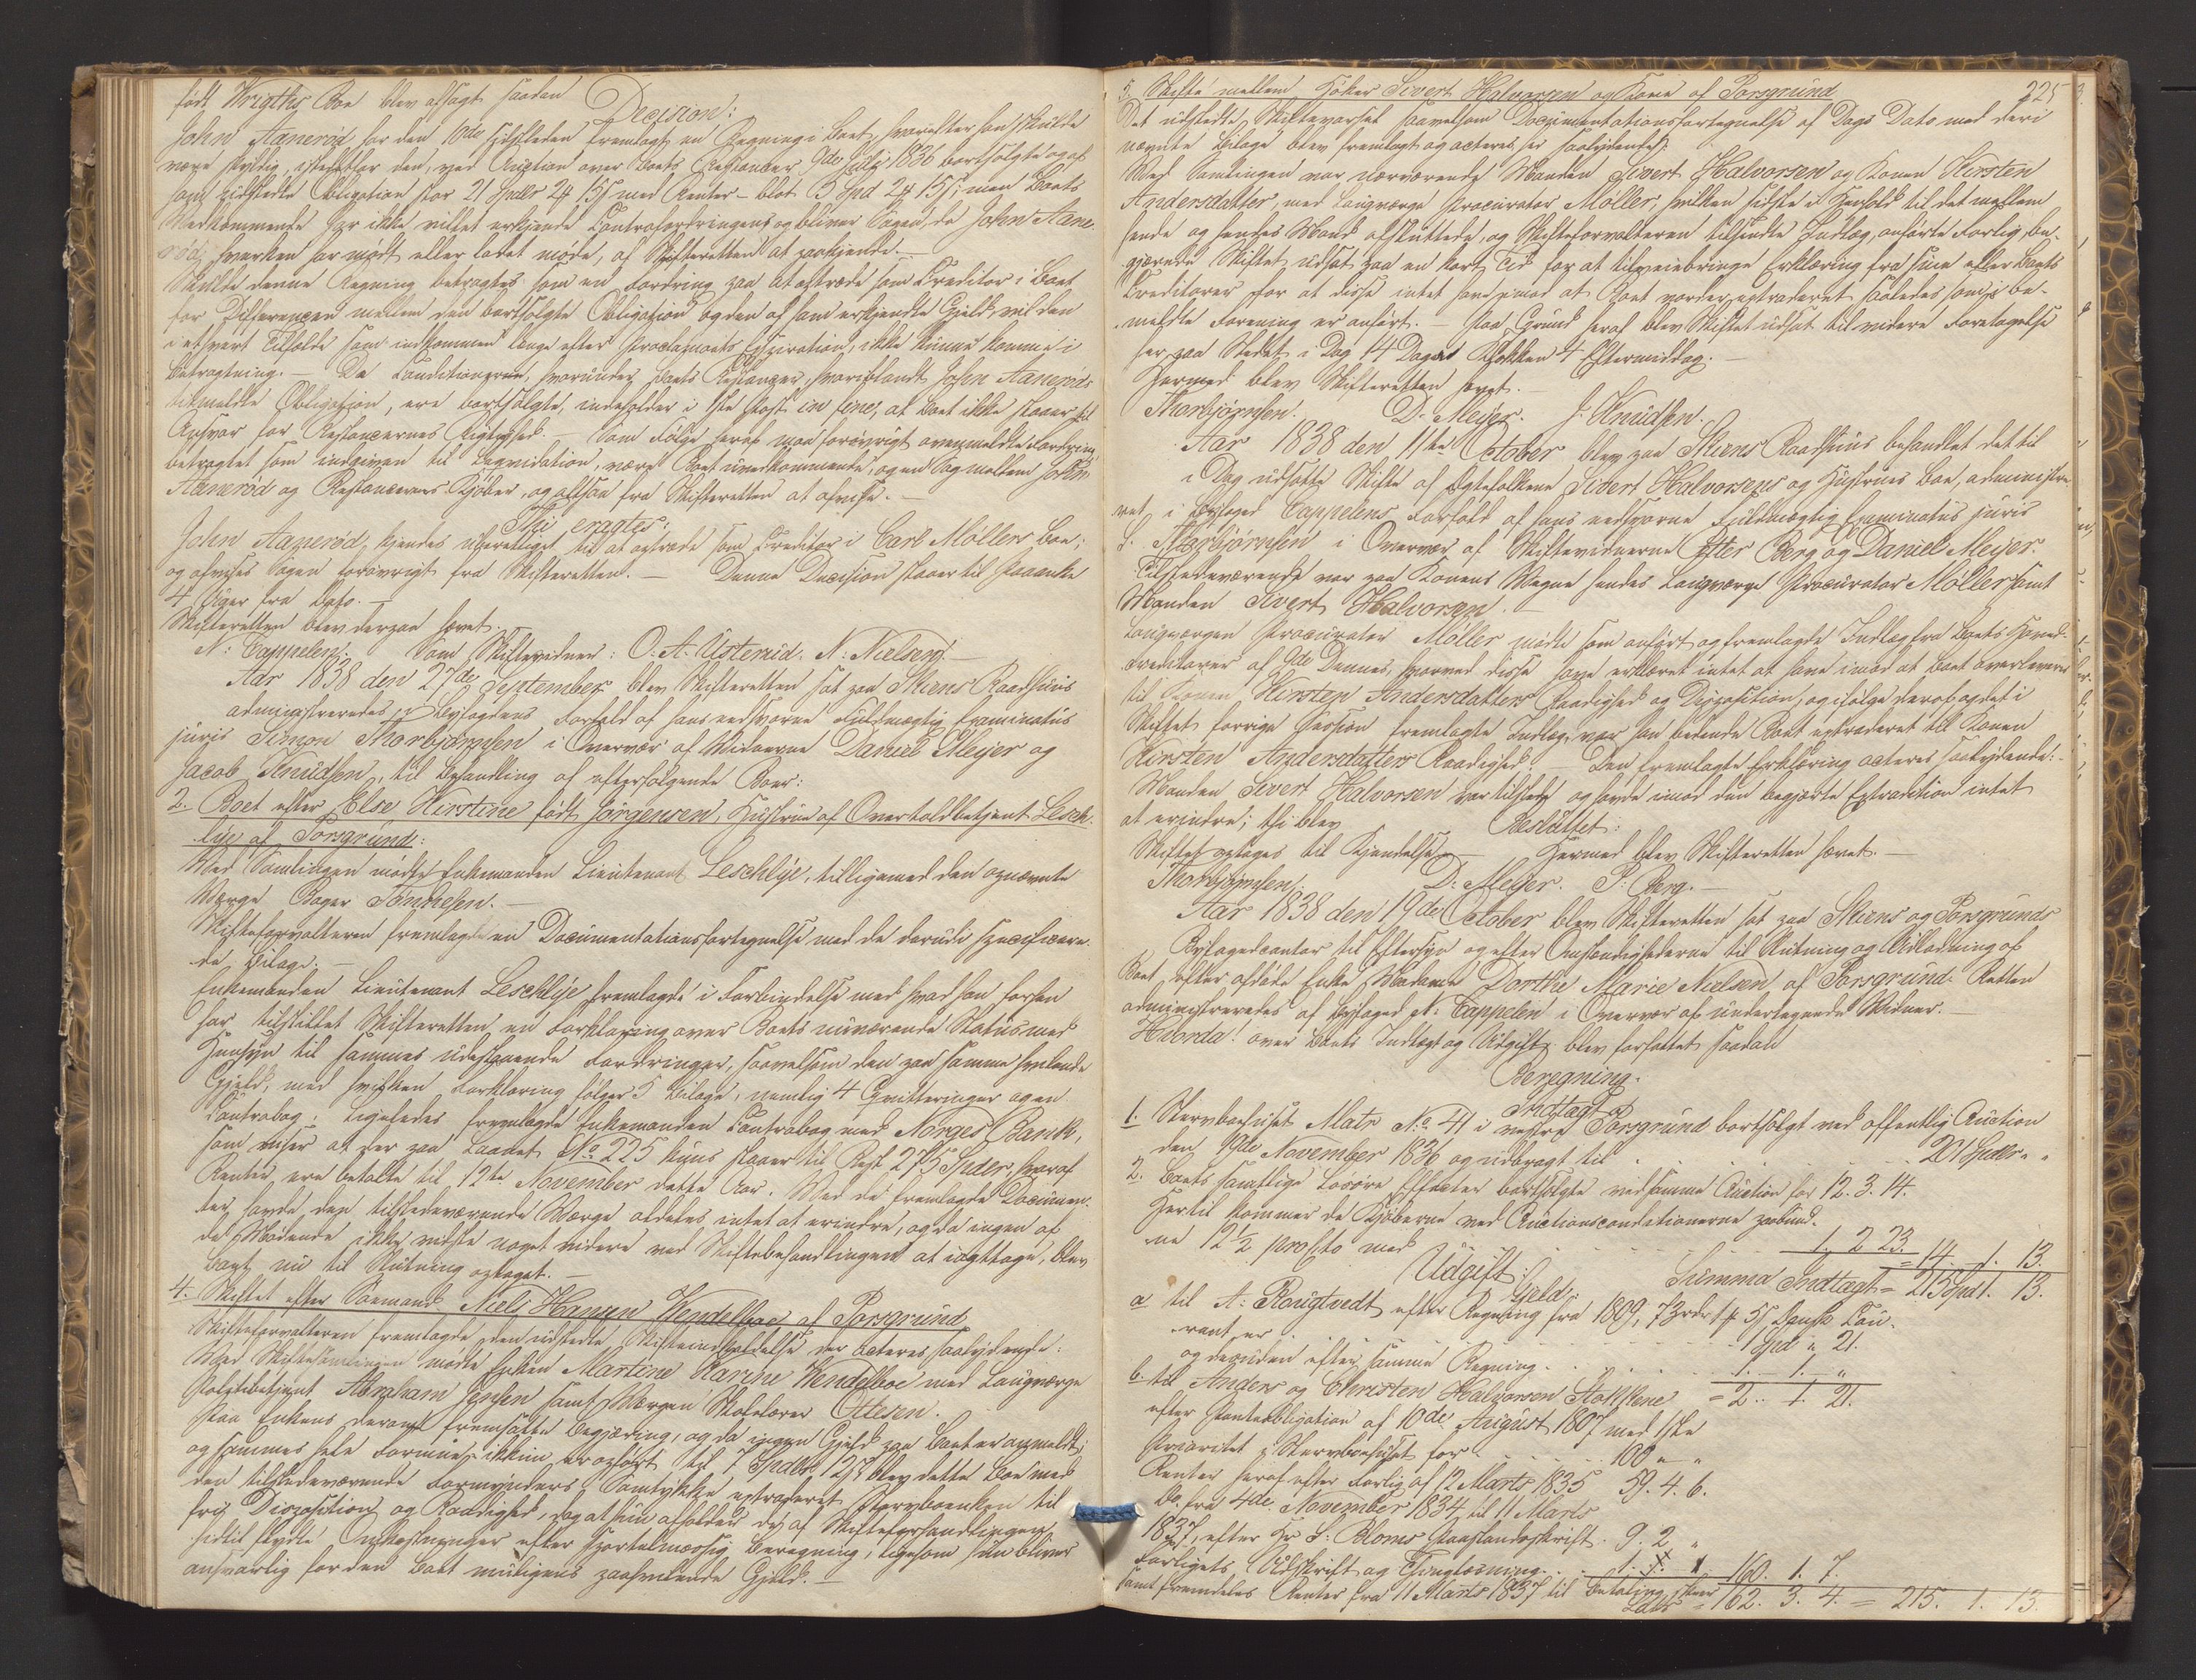 født Wrigths Boe blev afsagt saadan
Decision:
John Aanerød har den 10de sidstleden fremlagt en Regning i Boet, hvorefter han skulde
være skyldig, istedetfor den, ved Auction over Boets Restancer 9de Julij 1836 bortsolgte og af
ham udstedte Obligation stor 21 Spdlr 24 15 s med Renter – blot 3 Spd 24 15 s; men Boets
Vedkommende har ikke villet erkjende Contrafordringens og bliver Sagen, da John Aane-
rød, hverken har mødt eller ladet møde, af Skifteretten at paakjende. –
Skulde denne Regning betragtes som en Fordring paa at optræde som Creditor i Boet
for Differencen mellem den bortsolgte Obligation og den af ham erkjendte Gjeld, vil den
i ethvert Tilfælde som indkommen længe efter Proclamaets Expiration, ikke kunne komme i
Betragtning. – De Conditioner, hvorunder Boets Restancer, hvoriblandt John Aanerøds
bemeldte Obligation, ere bortsolgte, indeholder i 1ste Post in fine, at Boet ikke staaer til
Ansvar for Restancernes Rigtighed. – Som Følge heraf maa forøvrigt ovenmeldte Fordring
betragtet som indgiven til Liqvidation, være Boet uvedkommende, og en Sag mellem John
Aanerød og Restancernes Kjøber, og altsaa fra Skifteretten at afvise. –
Thi eragtes:
John Aanerød kjendes uberettiget til at optræde som Creditor i Carl Møllers Boe;
og afvises Sagen forøvrigt fra Skifteretten. – Denne Decision staaer til Paaanke
4 Uger fra Dato. –
Skifteretten blev derpaa hævet.
N: Cappelen. Som Skiftevidner: O. A. Usterud. N: Nielsen. –
Aar 1838 den 27de September blev Skifteretten sat paa Skiens Raadhuus
administreredes i Byfogdens Forfald af hans eedsvorne Fuldmægtig Examinatus
juris Simon Thorbjørnsen i Overvær af Vidnerne Daniel Meijer og
Jacob Knudsen, til Behandling af efterfølgende Boer:
2. Boet efter Else Kirstine født Jørgensen, Hustrue af Overtoldbetjent Lesch-
lye af Porsgrund:
Ved Samlingen mødte Enkemanden Lieutenant Leschlye, tilligemed den opnævnte
Værge Bager Tønnesen. –
Skifteforvalteren fremlagde en Documentationsfortegnelse med de derudi specificere-
de Bilage: –
Enkemanden Lieutenant Leschlye fremlagde i Forbindelse med hvad han forhen
har tilstillet Skifteretten, en Forklaring over Boets nuværende Status med
Hensyn til sammes udestaaende Fordringer, saavelsom den paa samme hvilende
Gjeld, med hvilken Forklaring følger 5 Bilage, nemlig 4 Qvitteringer og en
Contrabog. Ligeledes fremlagde Enkemanden Contrabog med Norges Bank,
som viser at der paa Laanet No 225 kuns staaer til Rest 275 Spdlr, hvoraf
Renter ere betalte til 12te November dette Aar. Med de fremlagde Documen-
ter, havde den tilstedeværende Værge aldeles intet at erindre, og da ingen af
de Mødende ikke vidste noget videre ved Skiftebehandlingen at iagttage, blev
Boet nu til Slutning optaget. –
4. Skiftet efter Sømand Niels Hansen Wendelboe af Porsgrund
Skifteforvalteren fremlagde den udstedte Skifteindkaldelse der acteres saalydende:
Ved Skiftesamlingen mødte Enken Martine Karine Wendelboe med Laugværge
Politibetjent Abraham Jensen samt Værgen Skolelærer Ottesen.
Paa Enkens derom fremsatte Begjæring, og da ingen Gjeld paa Boet er anmeldt,
og sammes hele Formue ikkun er opført til 7 Spdlr 12 s blev dette Boe med
den tilstedeværende Formynders Samtykke extraderet Sterboenken til
fri Disposition og Raadighed, dog at hun afholder de af Skifteforhandlingen
hidtil flydte Omkostninger efter sportelmæssig Beregning, ligesom hun bliver
ansvarlig for den Boet muligens paahvilende Gjeld. –
225
5. Skifte mellem Høker Sivert Halvorsen og Kone af Porsgrund
Det udstedte Skiftevarsel saavelsom Documentationsfortegnelse af Dags Dato med deri
nævnte Bilage blev fremlagt og acteres her saalydende:
Ved Samlingen var nærværende Manden Sivert Halvorsen og Konen Kirsten
Andersdatter, med Laugværge Procurator Møller, hvilken sidste i Henhold til det mellem
hende og hendes Mand afsluttede, og Skifteforvalteren tilsendte Indlæg, anførte Forlig, be-
gjærede Skiftet udsat paa en kort Tid for at tilveiebringe Erklæring fra sine eller Boets
Creditorer for at disse intet have imod at Boet vorder extraderet saaledes som i be-
meldte Forening er anført. – Paa Grund heraf blev Skiftet udsat til videre Foretagelse
her paa Stedet i Dag 14 Dage Klokken 4 Eftermiddag. –
Hermed blev Skifteretten hævet. –
Thorbjørnsen. D. Meijer. J. Knudsen.
Aar 1838 den 11te October blev paa Skiens Raadhuus behandlet det til
i Dag udsatte Skifte af Ægtefolkene Sivert Halvorsens og Hustrues Boe, administre-
ret i Byfoged Cappelens Forfald af hans eedsvorne Fuldmægtig Examinatus juris
S. Thorbjørnsen i Overvær af Skiftevidnerne Peter Berg og Daniel Meijer.
Tilstedeværende var paa Konens Vegne hendes Laugværge Procurator Møller samt
Manden Sivert Halvorsen. –
Laugværgen Procurator Møller mødte som anført og fremlagde Indlæg fra Boets Hoved-
creditorer af 9de Dennes, hvorved disse have erklæret intet at have imod at Boet overleveres
til Konen Kirsten Andersdatters Raadighed og Disposition, og ifølge deraf og det i
Skiftet forrige Session fremlagte Indlæg, var han bedende Boet extraderet til Konen
Kirsten Andersdatters Raadighed. – Den fremlagte Erklæring acteres saalydende: –
Manden Sivert Halvorsen var tilstede og havde imod den begjærte Extradition intet
at erindre; thi blev Besluttet:
Skiftet optages til Kjendelse. – Hermed blev Skifteretten hævet. –
Thorbjørnsen. D. Meijer. P. Berg. –
Aar 1838 den 19de October blev Skifteretten sat paa Skiens og Porsgrunds
Byfogedcontor til Eftersyn og efter Omstændighederne til Slutning og Udlodning af
Boet efter afdøde Enke Madame Dorthe Marie Nielsen af Porsgrund. Retten
administreredes af Byfoged N: Cappelen i Overvær af undertegnede Vidner. –
Hvorda over Boets Indtægt og Udgift blev forfattet saadan
Beregning.
Indtægt
1. Stervboehuset Matr No 41 i vestre Porsgrund bortsolgt ved offentlig Auction
den 19de November 1836 og udbragt til . . . . 201 Spdlr " "
2. Boets samtlige Løsøre Effecter bortsolgte ved samme Auction for 12. 3. 14.
Hertil kommer de Kjøberne ved Auctionsconditionerne paabud-
ne 12½ proCto med . . . 1. 2 23. = 14. 1. 13.
Summa Indtægt = 215 Spd 1. 13.
Udgift:
Gjeld:
a til A: Rougtvedt efter Regning fra 1809, 7 Rdr 1 # 5 s Dansk Cou-
rant, er . . . 1 Spd " 21.
og desuden efter samme Regning . . . 1. 1. "
= 2. 1. 21.
b. til Anders og Christen Halvorsen Stokkene
efter Panteobligation af 10de August 1807 med 1ste
Prioritet i Stervboehuset for . . . 100 " "
Renter heraf efter Forlig af 12 Marts 1835 59. 4. 6.
Do fra 4de November 1834 til 11 Marts
1837, efter Hr S. Bloms Paastandsskrift 9. 2. "
Forligets Udskrift og Thinglæsning . . . 160. 1. 7.
samt fremdeles Renter fra 11 Marts 1837 til Betaling skeer
Latr = 162. 3. 4. = 215. 1. 13.